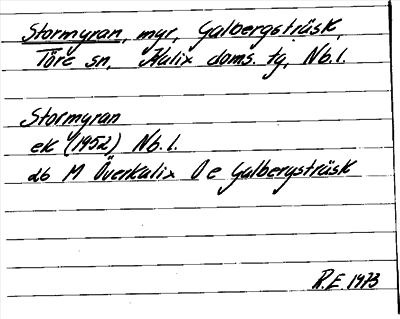 Stormyran, myr, Galbergsträsk,
Töre sn, Kalix doms. tg, Nb. l.
Stormyran
ek (1952) Nb. l.
26 M Överkalix O e Galbergsträsk
R.E. 1973